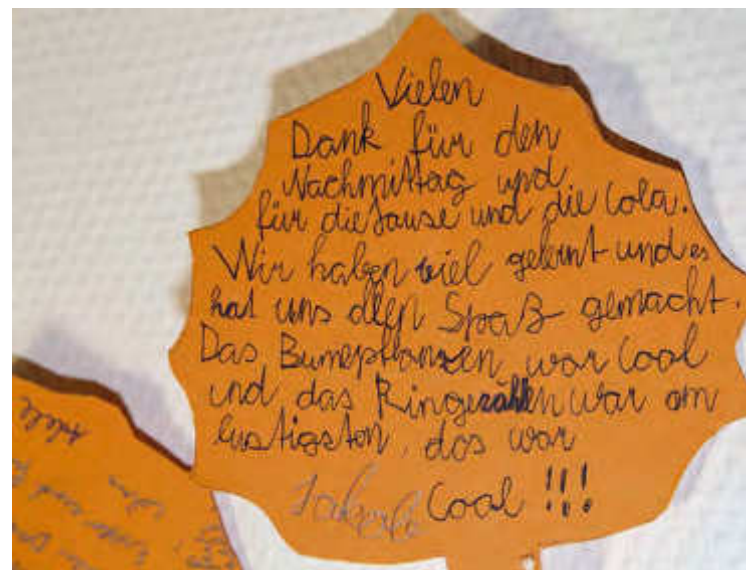 Vielen
Dank für den
Nachmittag und
für die Jause und die Cola.
Wir haben viel gelernt und es
hat uns allen Spaß gemacht.
Das Bumepflanzen war Cool
und das Ringezählen war am
lustigsten, das war
Cool !!!